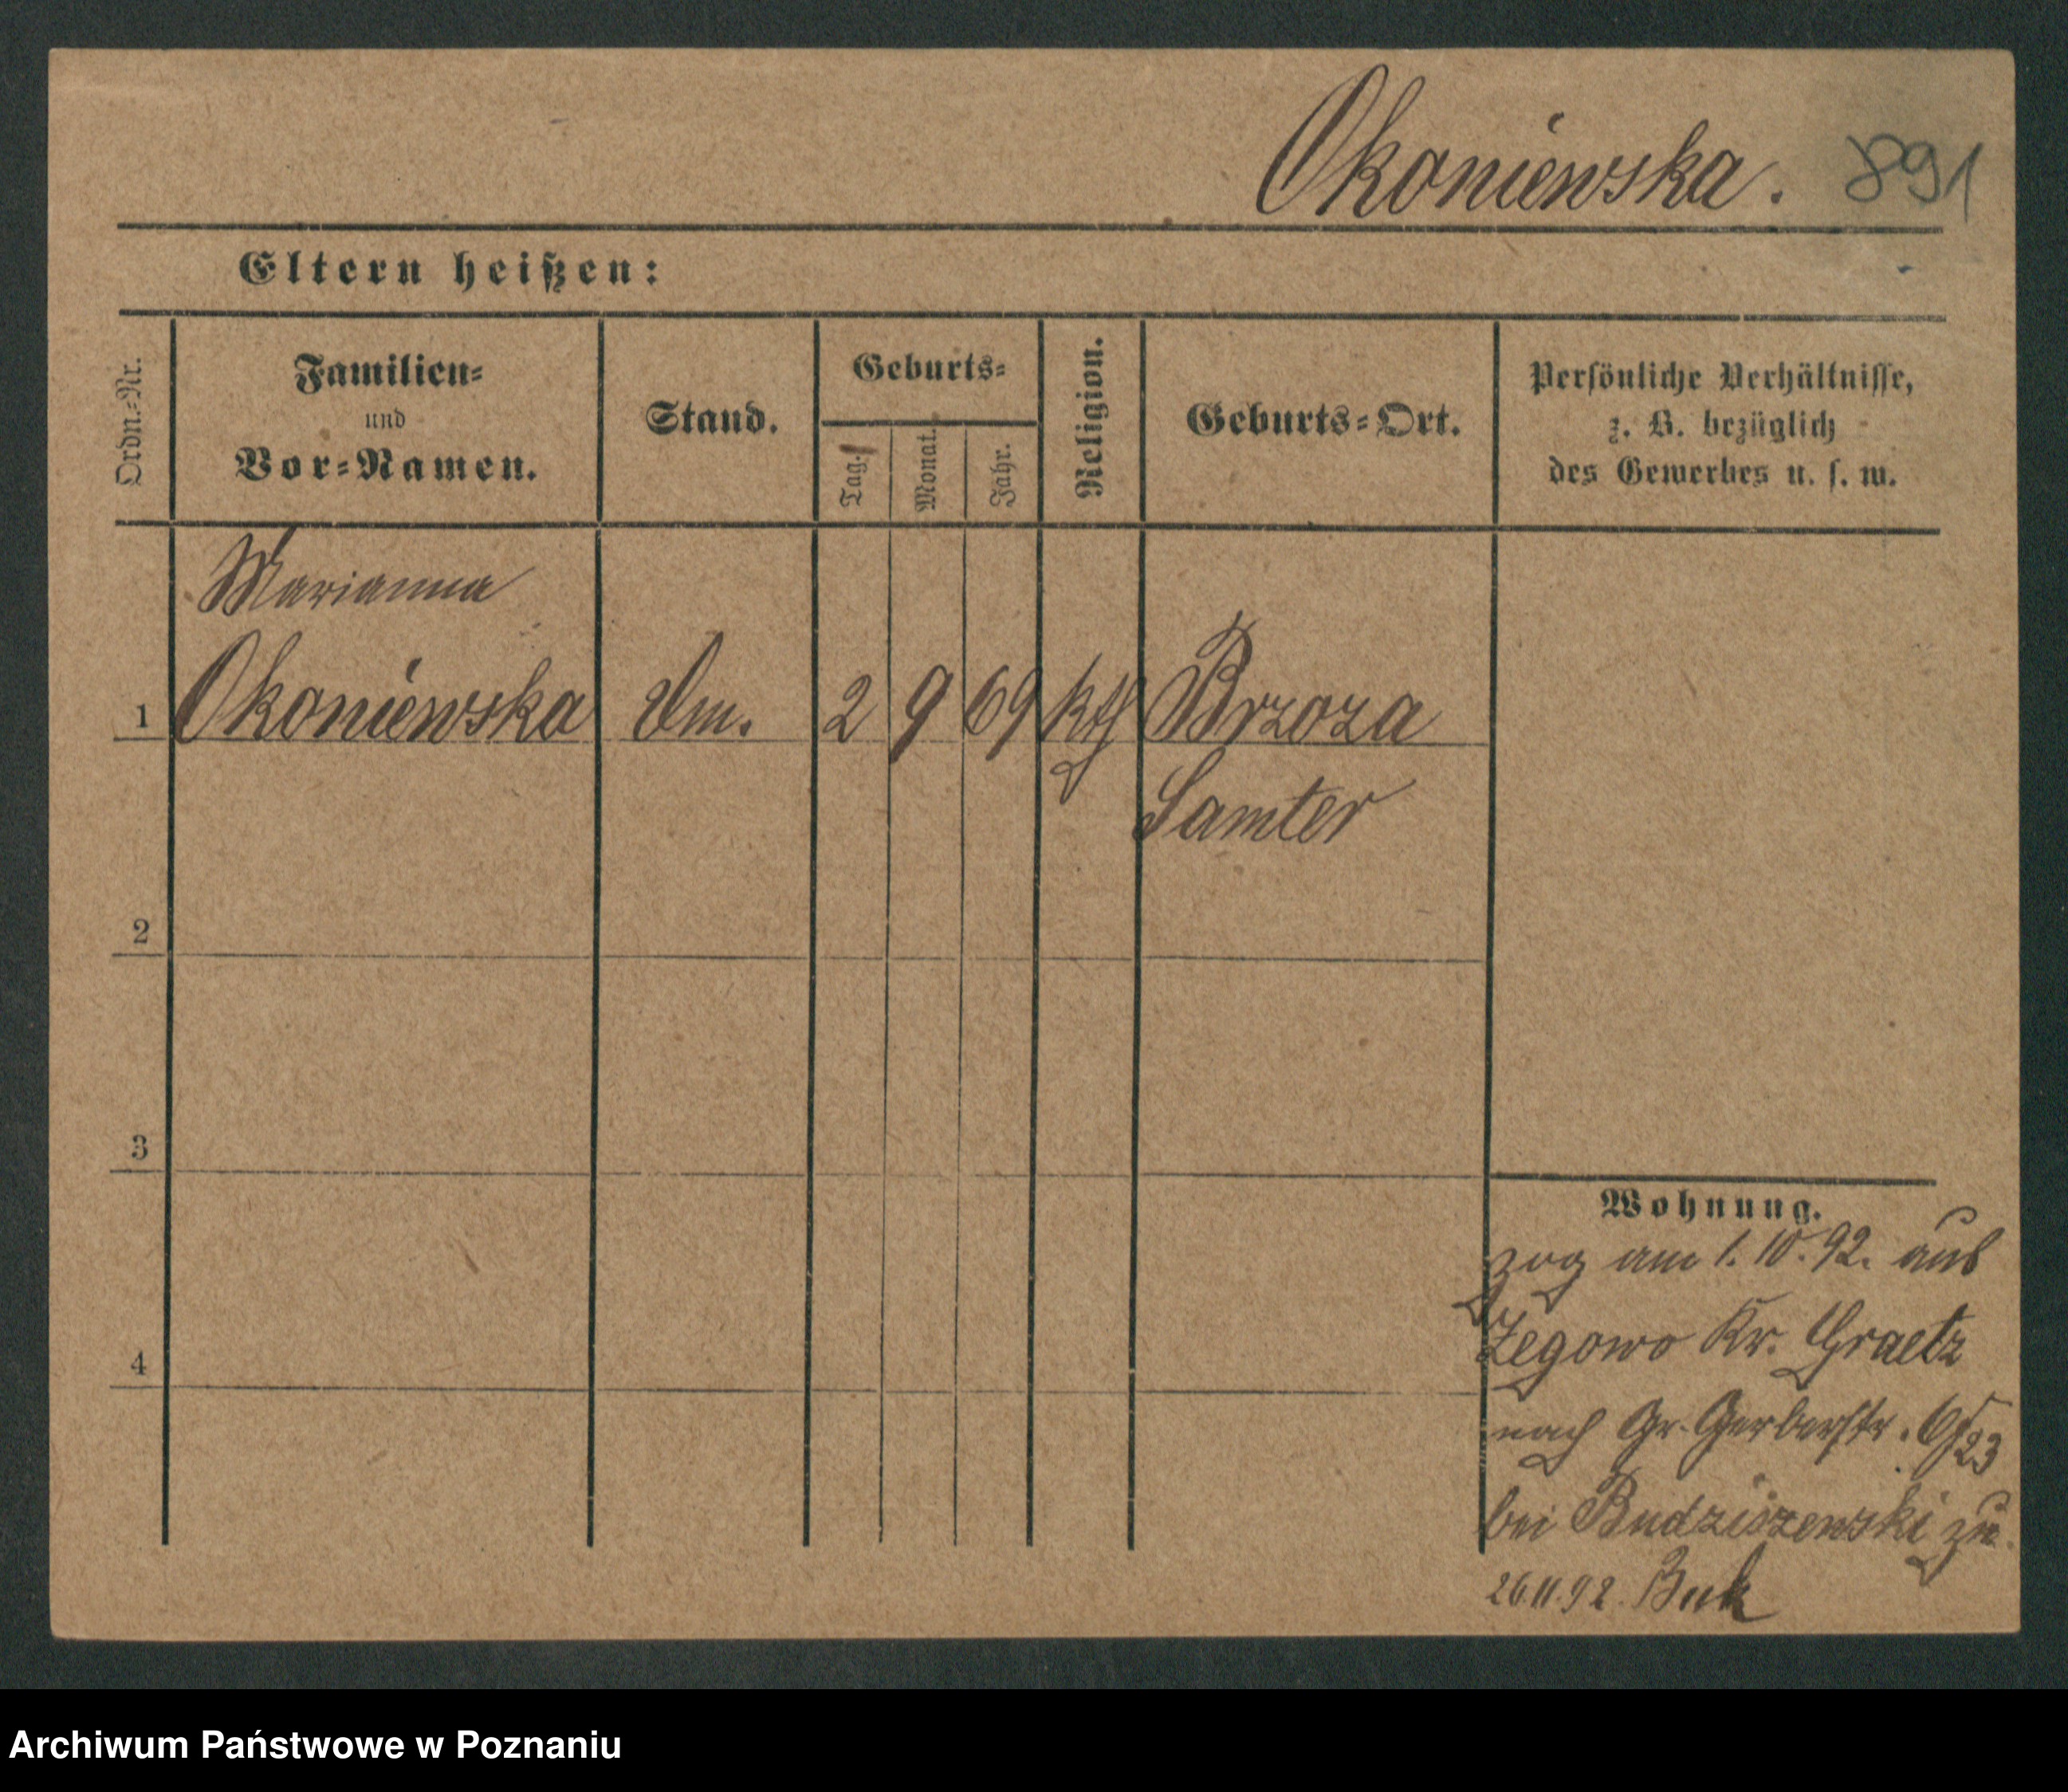 Okoniewska. 891
Eltern heißen:
Ordn.-Nr.
Familien-
und
Vor-Namen.
Stand.
Geburts-
Tag.
Monat.
Jahr.
Religion.
Geburts-Ort.
Persönliche Verhältnisse,
z. B. bezüglich
des Gewerbes u. s. w.
Marianna
1 Okoniewska Dm. 2 9 69 kth Brzoza
Samter
2
3
4
Wohnung.
zog am 1. 10. 92. aus
Zegowo Kr. Graetz
nach Gr. Gerberstr.
bei Budziszewski zu.
26.11.92. Buk
Archiwum Państwowe w Poznaniu